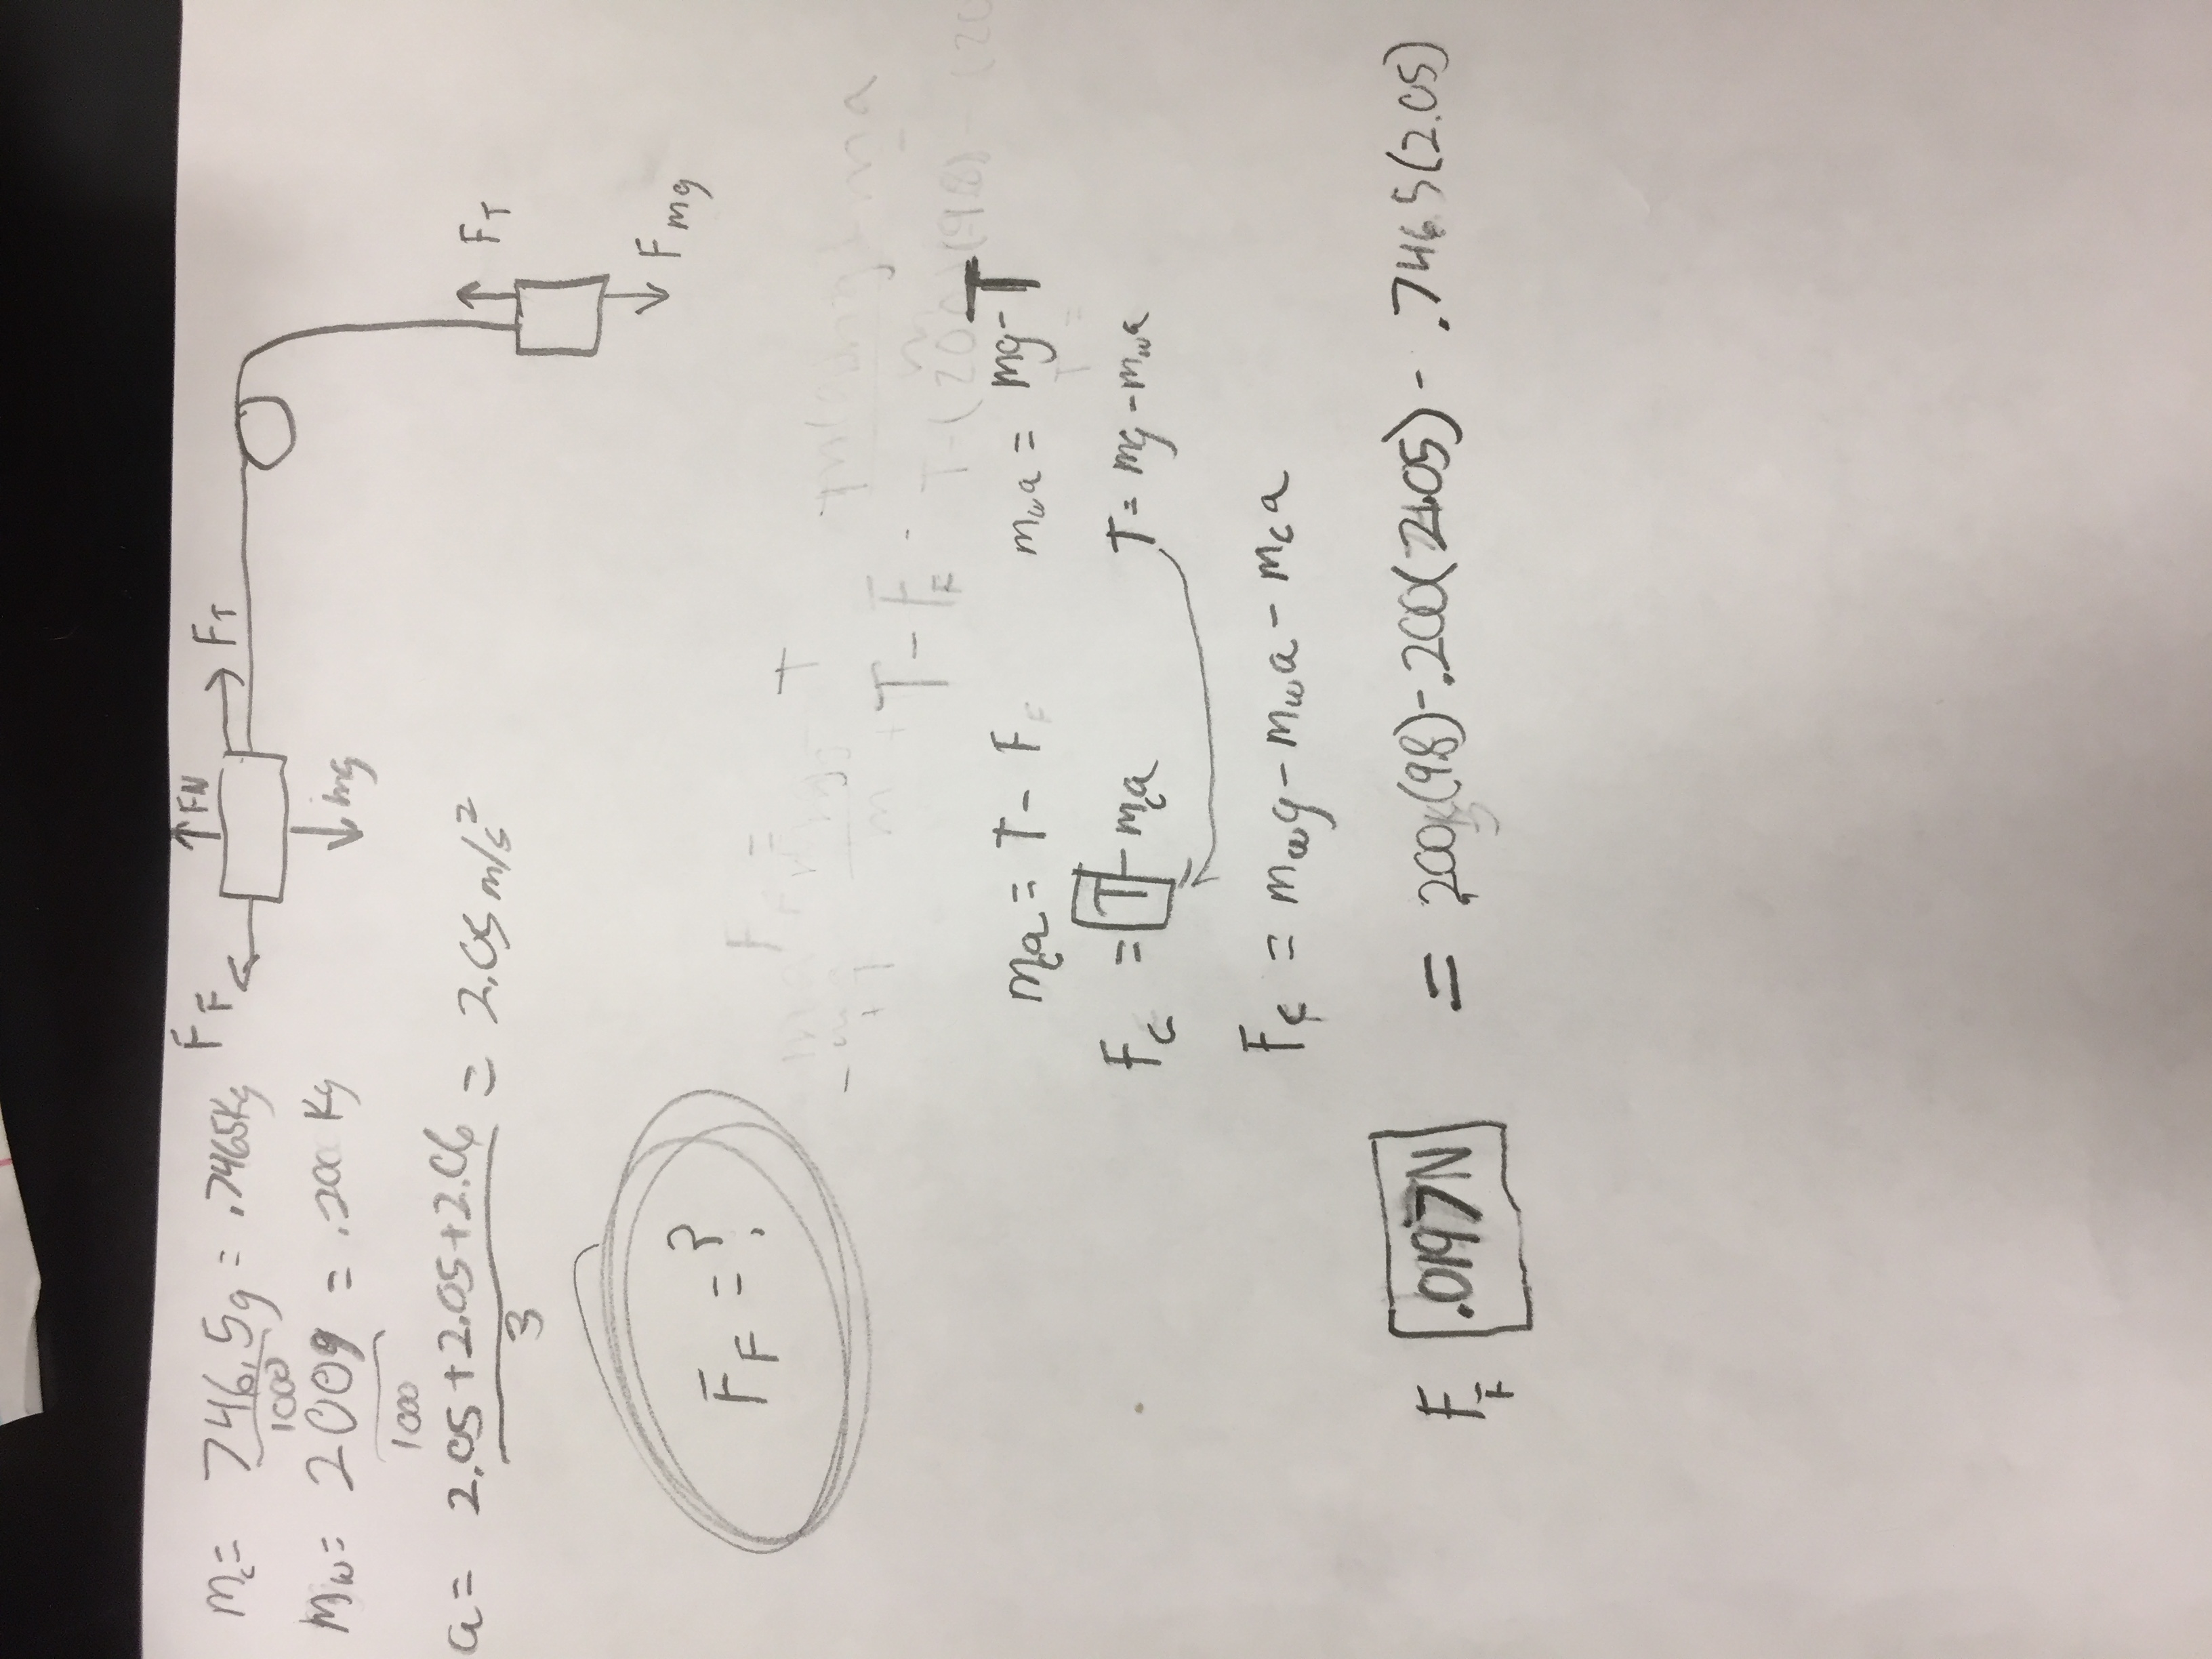 m_c = 746.5g = .7465Kg
1000
m_w = 200g = .200 Kg
1000
a = 2.05+2.05+2.06 = 2.05 m/s²
3
F_F
FN
F_T
mg
F_T
F_mg
F_F = ?
T
T - F_F -
m_c a = T - F_F
m_w a = mg - T
F_c = T - m_c a
T = mg - m_w a
F_c = m_w g - m_w a - m_c a
F_F .0197N = .200(9.8) - .200(2.05) - .7465(2.05)